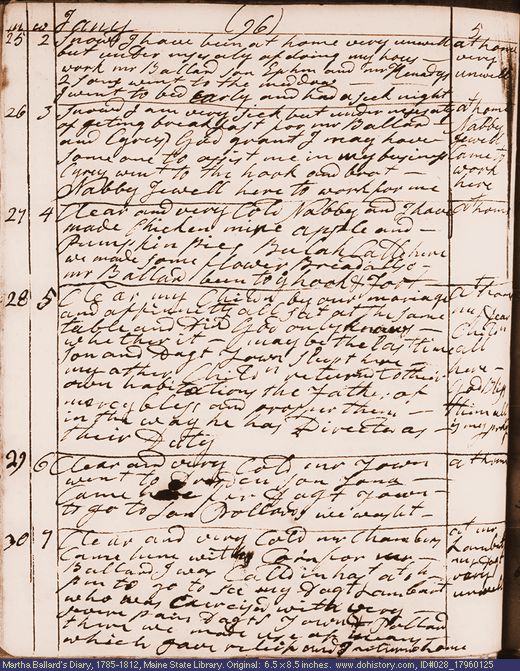 m w Jany (96) 5
25 2 Snow. I have been at home very unwell at home
but under necesaty of doing my hous very
work mr Ballard son Ephm and mr Kenady unwell
2 sons went to the middoe
I went to bed Early and had a sick night
26 3 Snowd I am very Sick but under necesaty at home
of geting breakfast for mr Ballard Nabby
and Cyrus God grant I may have Jewell
some one to assist me in my business Came to
Cyrus went to the hook and back work
Nabby Jewell here to work for me here
27 4 Clear and very Cold Nabby and I have at home
made Chicken mins apple and
Pumpkin Pies Beulah Call here
we made some flower Bread allso
mr Ballard been to ye hook &
28 5 Clear my Childn by our marriage at home
and affinnity all sat at the same my Dear
table and Did God only knows Childn
whether it may be the Last time call
son and Dagt Town sleept here here
my other Childn returnd to their God Bless
own habitations the father of them all
mercy bless and prosper them is my prayer
in the way he has Directed us
their Duty
29 6 Clear and very Cold mr Town at home
went to son Jona
Came here for Dagt Town
to go to son Pollards we
30 7 Clear and very Cold mr Chambers at mr
Came here with Corn for mr Lambards
Ballard I was Calld in hast at 2 h my Dagt
pm to go to see my Dagt Lambard very
who was Exercisd with very unwell
severe pain Dagts Town & Pollard
there we made use of means
which gave relief and I returnd home
Martha Ballard's Diary, 1785-1812, Maine State Library. Original: 6.5 x 8.5 inches. www.dohistory.com, ID#028_17960125